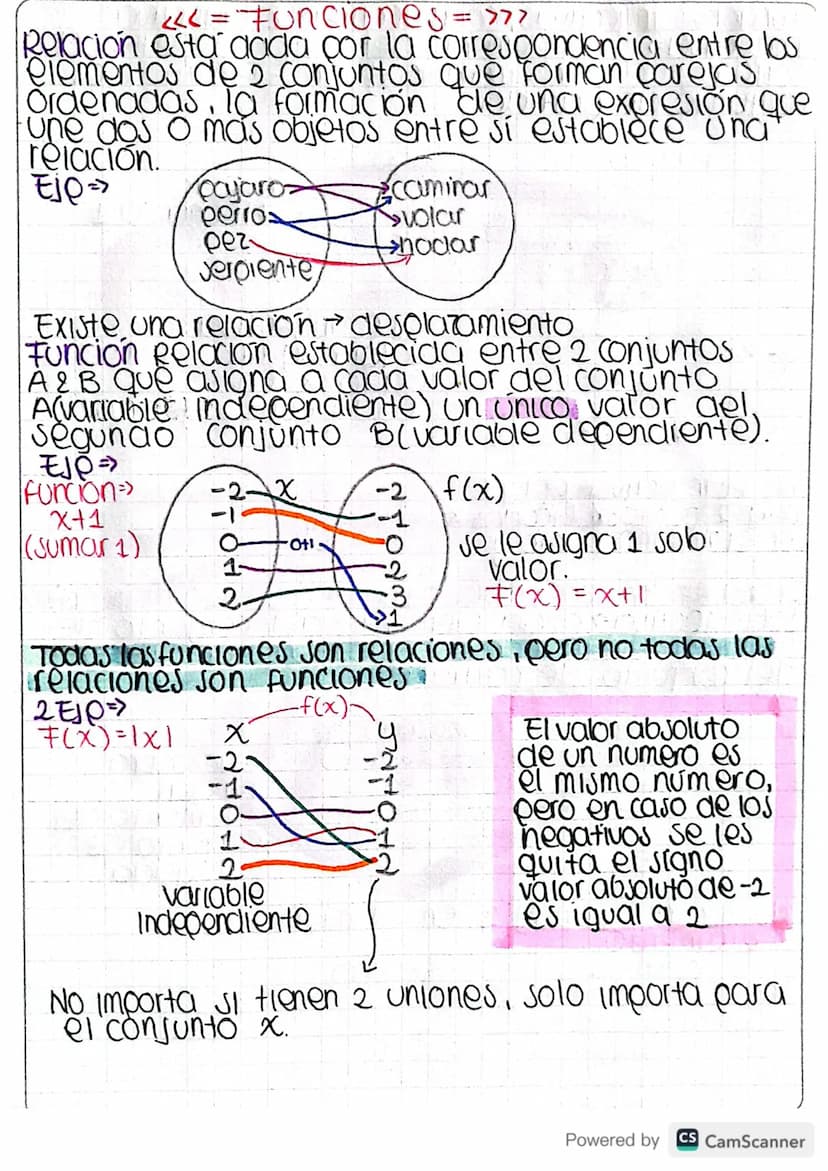 <<< = Funciones = >>>
Relación está dada por la correspondencia entre los
elementos de 2 conjuntos que forman parejas
ordenadas, la formación de una expresión que
une dos o más objetos entre sí establece una
relación.
Ejp =>
pajaro caminar
perro volar
pez nadar
serpiente
Existe una relación → desplazamiento
Función Relación establecida entre 2 conjuntos
A & B que asigna a cada valor del conjunto
A(variable independiente) un único valor del
segundo conjunto B(variable dependiente).
Ejp =>
función => -2 x -2 f(x)
x+1 -1 -1
(sumar 1) 0 0+1 0 se le asigna 1 solo
1 2 valor.
2 3 F(x) = x+1
1
Todas las funciones son relaciones, pero no todas las
relaciones son funciones.
2 Ejp => f(x)
F(x)=|x| x y
-2 -2
-1 -1
0 0
1 1
2 2
variable
Independiente
El valor absoluto
de un numero es
el mismo número,
pero en caso de los
negativos se les
quita el signo
valor absoluto de -2
es igual a 2
No importa si tienen 2 uniones, solo importa para
el conjunto x.
Powered by CS CamScanner